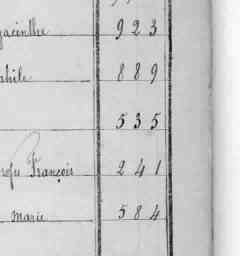 yacinthe 923
phile 889
535
François 241
Marie 584